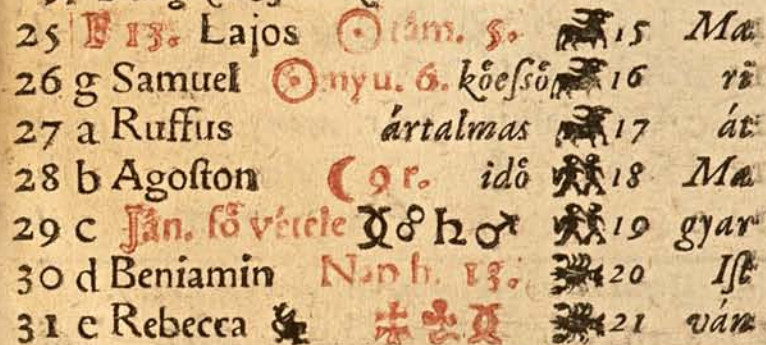 25 F 13. Lajos ☉ tám. 5. 15 Ma
26 g Samuel ☉ nyu. 6. koͤeſſoͤ 16 ri
27 a Ruffus ártalmas 17 át
28 b Agoſton ☾ 9 r. idoͤ 18 Ma
29 c Ján. foͤ vétele ☍ ♄ ♂ 19 gyar
30 d Beniamin Nap h. 13. 20 Iſt
31 e Rebecca 21 ván